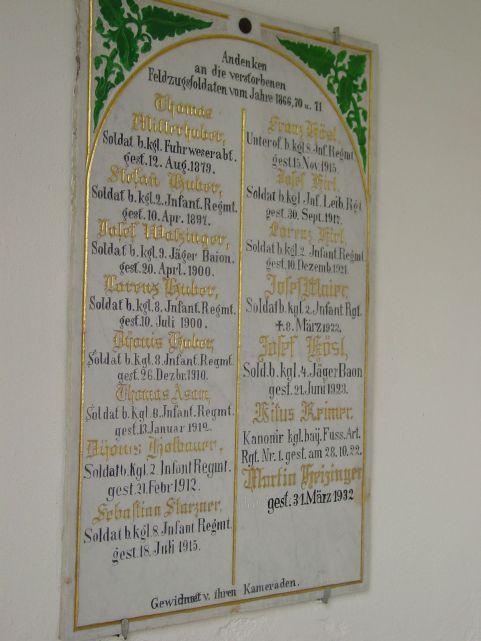 Andenken
an die verstorbenen
Feldzugssoldaten vom Jahre 1866, 70 u. 71
Thomas
Mitterhuber,
Soldat b. kgl. Fuhrweserabt.
gest. 12. Aug. 1879.
Stefan Huber,
Soldat b. kgl. 2. Infant. Regmt.
gest. 10. Apr. 1897.
Josef Watzinger,
Soldat b. kgl. 9. Jäger Baion.
gest. 20. Aprl. 1900.
Lorenz Huber,
Soldat b. kgl. 8. Jnfant. Regmt.
gest. 10. Juli 1900.
Dyonis Huber,
Soldat b. kgl. 8. Jnfant. Regmt.
gest. 26. Dezbr. 1910.
Thomas Asam,
Soldat b. kgl. 8. Jnfant. Regmt.
gest. 13. Januar 1912.
Dyonis Holbauer,
Soldat b. kgl. 2 Infant Regmt.
gest. 21. Febr 1912.
Sebastian Starzner.
Soldat b. kgl. 8 Jnfant Regmt.
gest. 18. Juli 1915.
Franz Kösl,
Unterof. b. kgl. 8. Jnf. Regmt.
gest. 15. Nov. 1915.
Josef Hirl,
Soldat b. kgl. Jnf. Leib Rgt.
gest. 30. Sept. 1917.
Lorenz Hirl,
Soldat b. kgl. 2. Jnfant. Regmt.
gest. 10. Dezemb. 1921.
Josef Maier,
Soldat b. kgl. 2. Jnfant. Rgt.
✝ 8. März 1922.
Josef Kösl,
Sold. b. kgl. 4. Jäger Baon
gest. 21. Juni 1923.
Vitus Reimer.
Kanonir kgl. baij. Fuss. Art.
Rgt. Nr. 1. gest. am 28. 10. 22.
Martin Heizinger
gest. 31. März 1932
Gewidmet v. ihren Kameraden.